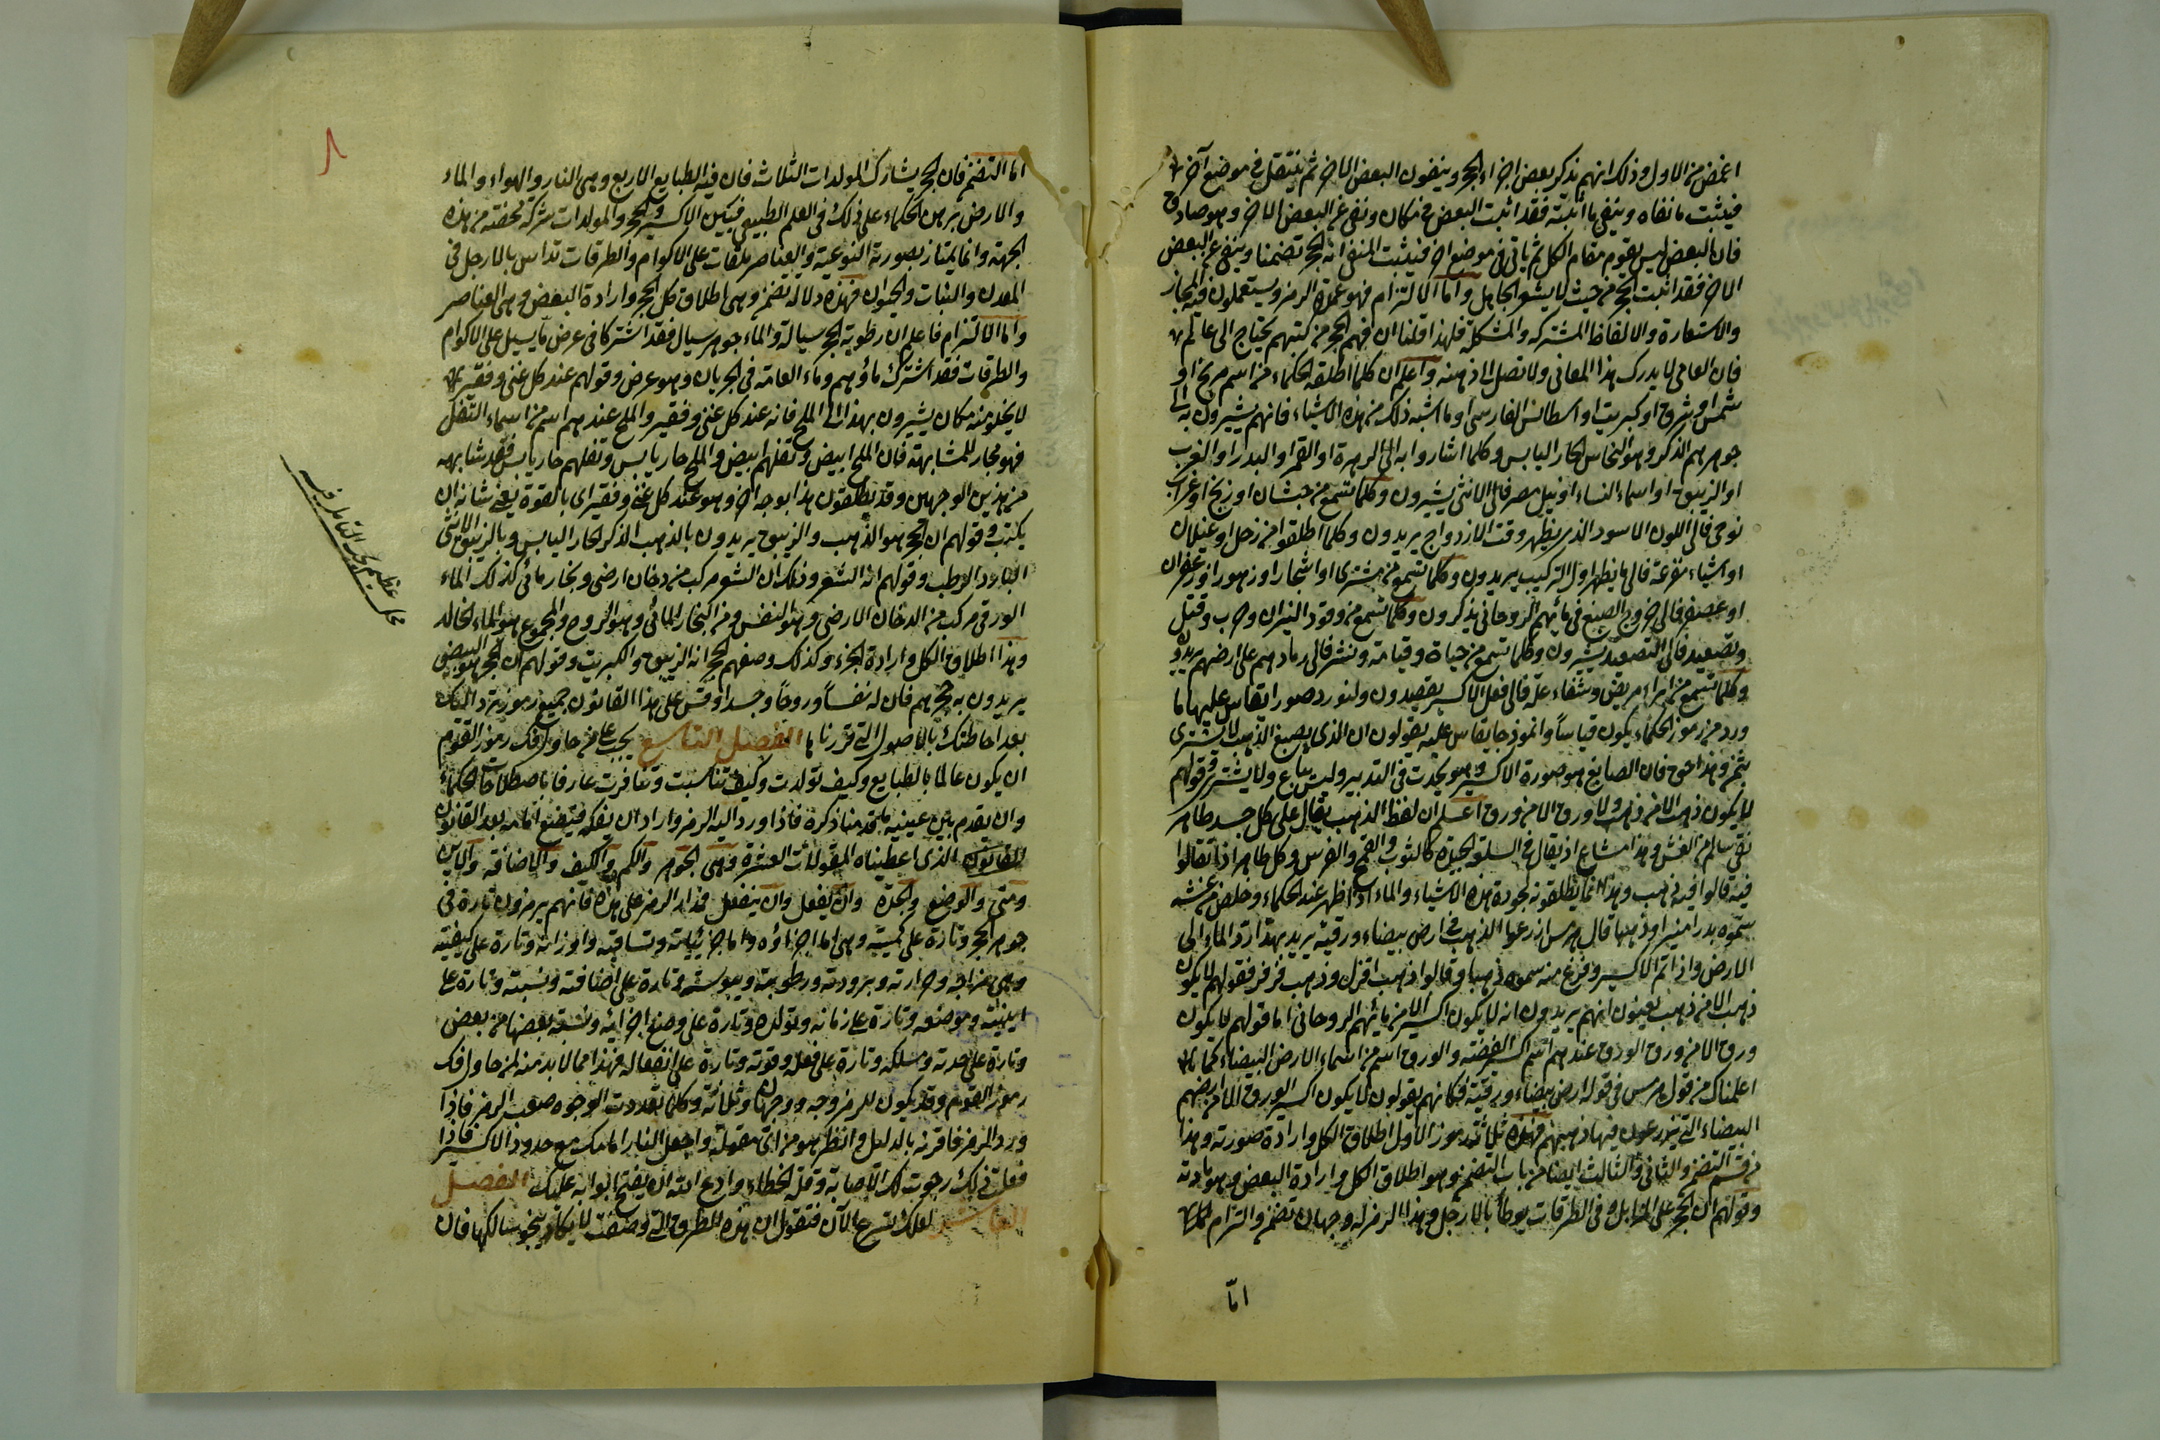 اغمض من الاول وذلك انهم يذكر بعض اجزاء الحجر وينفون البعض الاخر ثم ينتقل في موضع آخر
فيثبت ما نفاه وينفي ما اثبته فقد اثبت البعض في مكان ونفى عن البعض الاخر وهو صادق
فان البعض ليس يقوم مقام الكل ثم ياتى في موضع اخر فيثبت المنفى انه الحجر تضمنا وينفى عن البعض
الاخر فقد اثبت الحجر من حيث لا يشعر الجاهل واما الالتزام فهو عمدة الرمز ويستعملون فيه المجاز
والاستعارة والالفاظ المشتركه والمشكلة فلهذا قلنا ان فهم الحجر من كتبهم يحتاج الى عالم
فان العامى لا يدرك هذا المعانى ولا تصل الى ذهنه واعلم ان كلما اطلقه الحكماء من اسم مريخ او
شمس او شروق او كبريت او اسطانس الفارسى او ما اشبه ذلك من هذه الاشياء فانهم يشيرون به الى
جوهرهم الذكر وهو النحاس الحار اليابس وكلما اشاروا به الى الزهرة او القمر او البدر او الغرب
او الزيبق او اسماء النساء او نيل مصر فالى الانثى يشيرون وكلما تسمع من حبشان او زنج او غراب
نوحى فالى اللون الاسود الذى يظهر وقت الازدواج يريدون وكلما اطلقوا من زحل او عنيلان
او اشياء متفرعة فالى ما يظهر اول التركيب يريدون وكلما تسمع من مشترى او اشجار او زهور او زعفران
او عصفر فالى خروج الصبغ في مائهم الروحانى يذكرون وكلما تسمع من وقود النيران وحرب وقتل
وتصعيد فالى التصعيد يشيرون وكلما تسمع من حياة وقيامة ونشر فالى رمادهم على ارضهم يريدون
وكلما تسمع من ابراء مريض وشفاء علة فالى فعل الاكسير يقصدون ولنورد صورا تقاس عليها ما
ورد من رموز الحكماء يكون قياسا وانموذجا يقاس عليه يقولون ان الذى يصبغ الذهب لا يشترى
بثمن وهذا حق فان الصابغ هو صورة الاكسير وهو يحدث في التدبير وليس يباع ولا يشترى وقولهم
لا يكون ذهب الا من ذهب ولا ورق الا من ورق اعلم ان لفظ الذهب يقال على كل جسد طاهر
نقى سالم من الغش وهذا مشاع اذ يقال في السلع الجيدة كالثوب والقمح والفرس وكل طاهر اذا تغالوا
فيه قالوا فيه ذهب وهذا انما يطلقونه لجودة هذه الاشياء والماء اذا ظهر عند الحكماء وخلص من غشه
سموه بدرا منيرا وذهبا قال هرمس ازرعوا الذهب في ارض بيضاء ورقية يريد بهذا رد الماء الى
الارض واذا تم الاكسير وفرغ منه سموه ذهبا وقالوا ذهب اقزل وذهب فرفر فقولهم لا يكون
ذهب الا من ذهب يعنون انهم يريدون انه لا يكون اكسير الا من مائهم الروحانى اما قولهم لا يكون
ورق الا من ورق الورق عندهم اسم اكسير الفضة والورق اسم من اسماء الارض البيضاء كما
اعلمناك من قول هرمس في قوله ارض بيضاء ورقية فكانهم يقولون لا يكون اكسير الورق الا من ارضهم
البيضاء التى يزرعون فيها ذهبهم فهذه ثلاثة رموز الاول اطلاق الكل وارادة صورته وهذا
من قسم التضمن والثانى والثالث ايضا من باب التضمن وهو اطلاق الكل وارادة البعض وهو مادته
وقولهم ان الحجر على المزابل وفى الطرقات يوطأ بالارجل وهذا الرمز له وجهان تضمن والتزام
اما
اما التضمن فان الحجر يشارك المولدات الثلاث فان فيه الطبايع الاربع وهى النار والهواء والماء
والارض برهن الحكماء على ذلك فى العلم الطبيعى فبين الاكسير والحجر والمولدات شركة محضة من هذه
الجهة وانما يمتاز بصورته النوعية والعناصر ملقات على الاكوام والطرقات تداس بالارجل فى
المعدن والنبات والحيوان فهذه دلالة تضمن وهى اطلاق كل الحجر وارادة البعض وهى العناصر
واما الالتزام فاعلم ان رطوبة الحجر سيالة والماء جوهر سيال فقد اشتركا فى عرض ما يسيل على الاكوام
والطرقات فقد اشترك ماؤهم وماء العامة فى الجريان وهو عرض وقولهم عند كل غنى وفقير
لا يخلو منه مكان يشيرون بهذا الى الملح فانه عند كل غنى وفقير والملح عندهم اسم من اسماء الثفل
فهو مجاز للمشابهة فان الملح ابيض وثفلهم ابيض والملح حار يابس وثفلهم حار يابس فقد شابهه
من هذين الوجهين وقد يطلقون هذا بوجه اخر وهو عند كل غنى وفقير اى بالقوة يعنى شانه ان
يكتب وقولهم ان الحجر هو الذهب والزيبق يريدون بالذهب الذكر الحار اليابس وبالزيبق الانثى
البارد الرطب وقولهم انه الشعر وذلك ان الشعر مركب من دخان ارضى وبخار مائى كذلك الماء
الورقى مركب من الدخان الارضى وهو النفس ومن البخار المائى وهو الروح والمجموع هو الماء الخالد
وهذا اطلاق الكل وارادة الجزء وكذلك وصفهم الحجر انه الزيبق والكبريت وقولهم ان الحجر هو البيض
يريدون به حجرهم فان له نفسا وروحا وجسدا وقس على هذا القانون جميع رموز ترد اليك
بعد احاطتك بالاصول التى قررناها الفصل التاسع يجب على من حاول فك رموز القوم
ان يكون عالما بالطبايع وكيف تولدت وكيف تناسبت وتنافرت عارفا باصطلاحات الحكماء
وان يقدم بين عينيه ما قدمنا ذكره فاذا ورد اليه الرمز واراد ان يفكه فيضع امامه بعد القانون
القانون الذى اعطيناه المقولات العشرة وهى الجوهر والكم والكيف والاضافة والاين
ومتى والوضع والجدة وان يفعل وان ينفعل فمدار الرمز على هذه فانهم يرمزون تارة فى
جوهر الحجر وتارة على كميته وهى اما اجزاؤه واما جزئياته وتساقيه واوزانه وتارة على كيفيته
وهى مزاجه وحرارته وبرودته ورطوبته ويبوسته وتارة على اضافته ونسبته وتارة على
اينيته وموضعه وتارة على زمانه وتولده وتارة على وضع اجزائه ونسبة بعضها من بعض
وتارة على جدته وملكه وتارة على فعله وقوته وتارة على انفعاله فهذا مما لا بد منه لمن حاول فك
رموز القوم وقد يكون للرمز وجه ووجهان وثلاثة وكلما تعددت الوجوه صعب الرمز فاذا
ورد الرمز فاقرنه بالدليل وانظر هو من اى مقولة واجعل النار امامك مع حدود الاكسير فاذا
فعلت ذلك رجوت لك الاصابة وقلة الخطاء وادع الله ان يفتح ابوابه عليك الفصل
العاشر لعلك تسرع الآن فتقول ان هذه الطريق التى وصفت لا يكاد ينجو سالكها فان